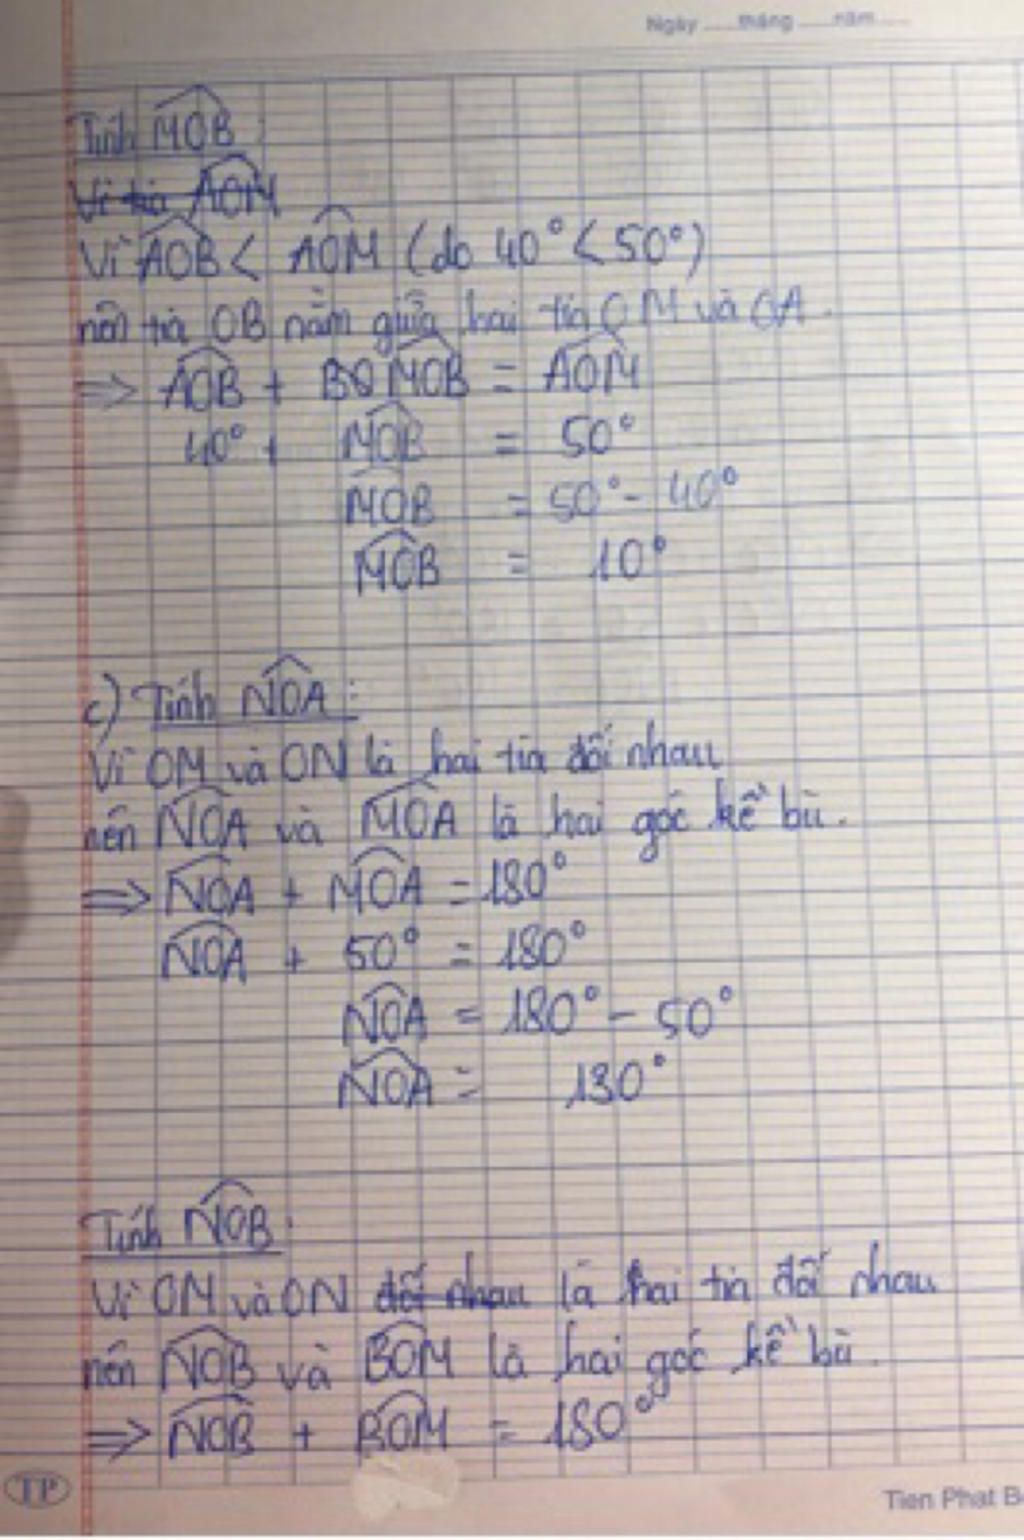 Ngày ....tháng ....năm ....
Tính MOB :
Vì tia AOM
Vì AOB < AOM (do 40° < 50°)
nên tia OB nằm giữa hai tia OM và OA.
=> AOB + BO MOB = AOM
40° + MOB = 50°
MOB = 50° - 40°
MOB = 10°
c) Tính NOA :
Vì OM và ON là hai tia đối nhau
nên NOA và MOA là hai góc kề bù.
=> NOA + MOA = 180°
NOA + 50° = 180°
NOA = 180° - 50°
NOA = 130°
Tính NOB :
Vì OM và ON đối nhau là hai tia đối nhau
nên NOB và BOM là hai góc kề bù.
=> NOB + BOM = 180°
TP
Tien Phat